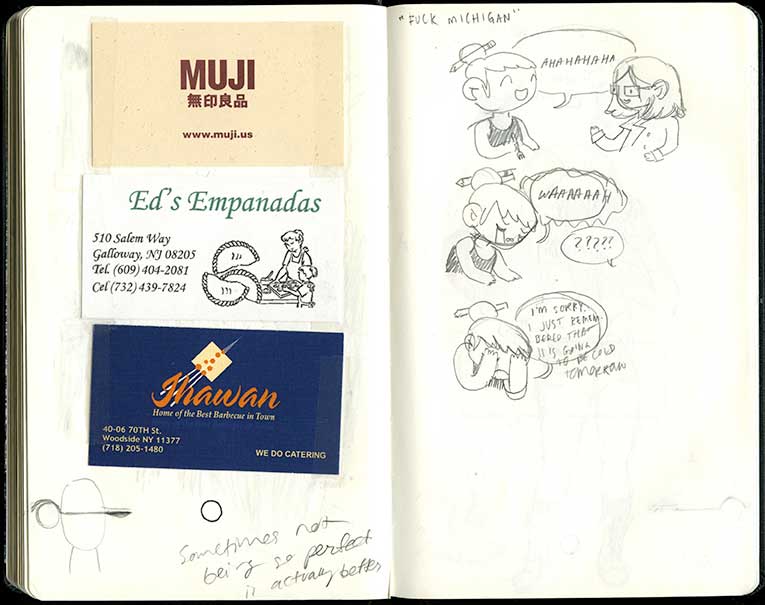 MUJI
無印良品
www.muji.us
Ed's Empanadas
510 Salem Way
Galloway, NJ 08205
Tel. (609) 404-2081
Cel (732) 439-7824
Ihawan
Home of the Best Barbecue in Town
40-06 70TH St.
Woodside NY 11377
(718) 205-1480
WE DO CATERING
Sometimes not
being so perfect
is actually better
"FUCK MICHIGAN"
AHAHAHAHA
WAAAAAAH
?????
I'M SORRY.
I JUST REMEM-
BERED THAT
IT IS GOING
TO BE COLD
TOMORROW